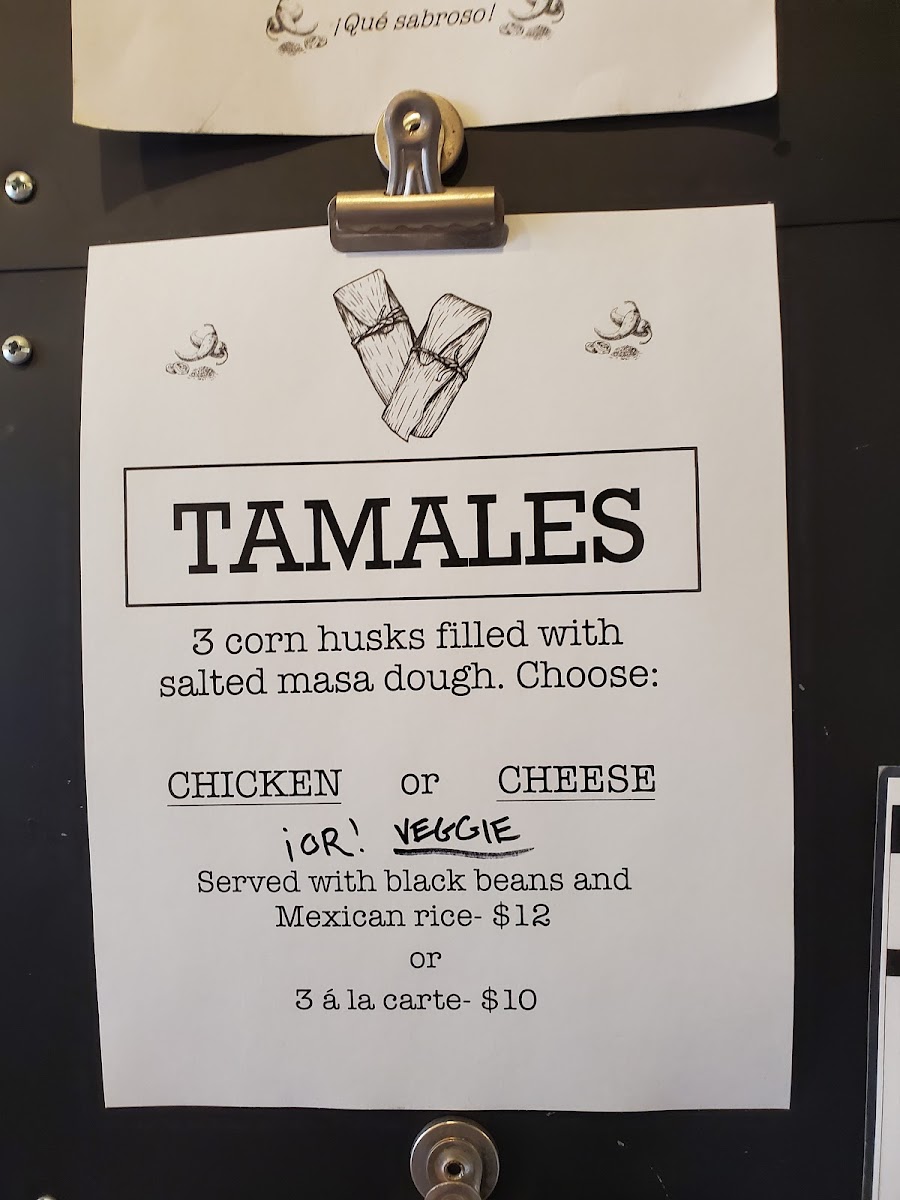 ¡Qué sabroso!
TAMALES
3 corn husks filled with
salted masa dough. Choose:
CHICKEN or CHEESE
¡OR! VEGGIE
Served with black beans and
Mexican rice- $12
or
3 á la carte- $10